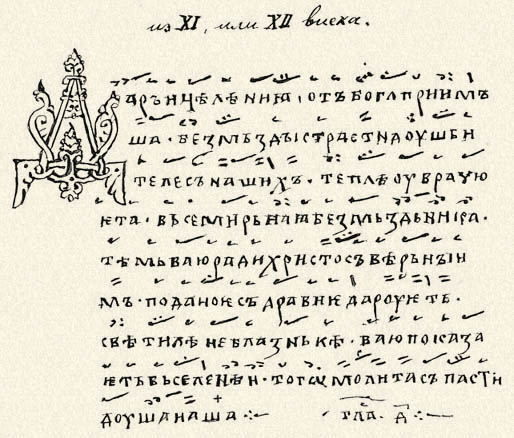 из XI, или XII виека.
ДАРЪ ИЦѢЛЕНИꙖ, ОТЪ БОГА ПРИИМЪ
ША · БЕЗМЪЗДЬ СТРАСТИ ДОУШЬ И
ТЕЛЕСЪ НАШИХЪ · ТЕПЛѢ ОУВРАЧЮ
ѤТА · ВЬСЕМИРЬНАꙖ БЕЗМЬЗДЬНИКА ·
ТѢМЬ ВАЮ РАДИ ХРИСТОСЪ ВѢРЬНЫИ
МЪ · ПОДАНОѤ СЪДРАВИѤ ДАРОУѤТЬ ·
СВѢТИЛѢ НЕБЛАЗНЬНѢ · ВАЮ ПОКАЗА
ѤТЬ ВЬСЕЛЕНѢИ · ТОГО МОЛИТА СЪПАСТИ
ДОУША НАША ⁘ · ГЛА · Д ⁘